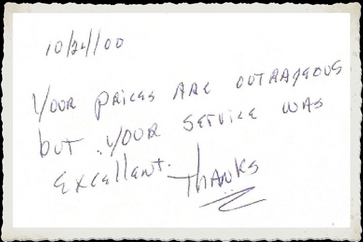 10/24/00
Your prices are outrageous
but your service was
excellent.
Thanks